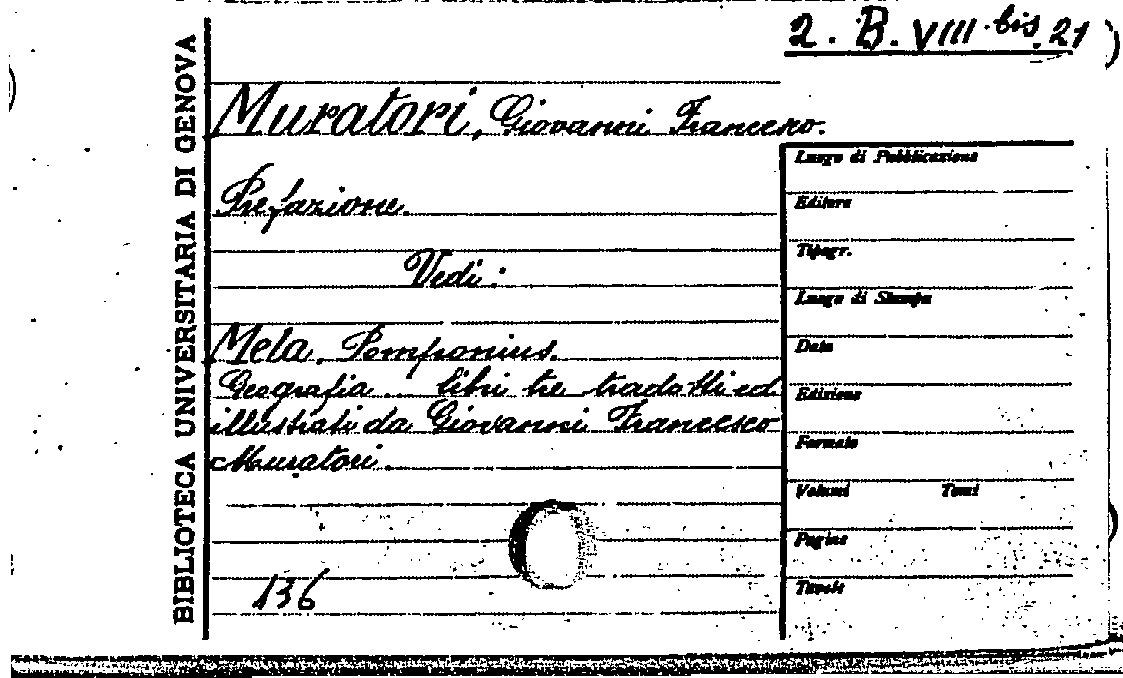 2. B. VIII bis. 21
BIBLIOTECA UNIVERSITARIA DI GENOVA
Muratori, Giovanni Francesco.
Prefazione.
Vedi:
Mela, Pomponius.
Geografia... libri tre tradotti ed
illustrati da Giovanni Francesco
Muratori.
136
Luogo di Pubblicazione
Editore
Tipogr.
Luogo di Stampa
Data
Edizione
Formato
Volumi Tomi
Pagine
Tavole